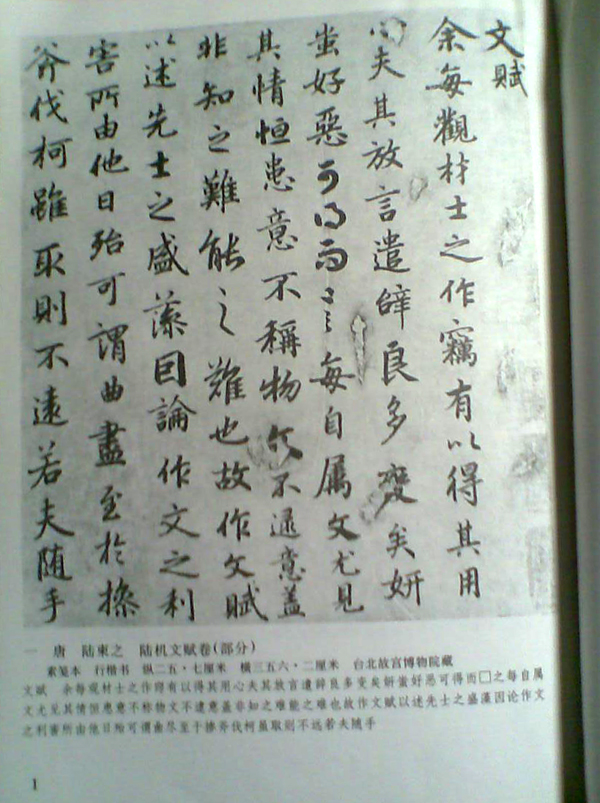 文賦
余每觀材士之作竊有以得其用
心夫其放言遣辭良多變矣妍
蚩好惡可得而言每自属文尤見
其情恒患意不稱物文不逮意盖
非知之難能之難也故作文賦
以述先士之盛藻因論作文之利
害所由他日殆可謂曲盡至於操
斧伐柯雖取則不遠若夫随手
一 唐 陆柬之 陆机文赋卷(部分)
素笺本 行楷书 纵二五·七厘米 横三五六·二厘米 台北故宫博物院藏
文赋 余每观材士之作窃有以得其用心夫其放言遣辞良多变矣妍蚩好恶可得而□之每自属
文尤见其情恒患意不称物文不逮意盖非知之难能之难也故作文赋以述先士之盛藻因论作文
之利害所由他日殆可谓曲尽至于操斧伐柯虽取则不远若夫随手
1